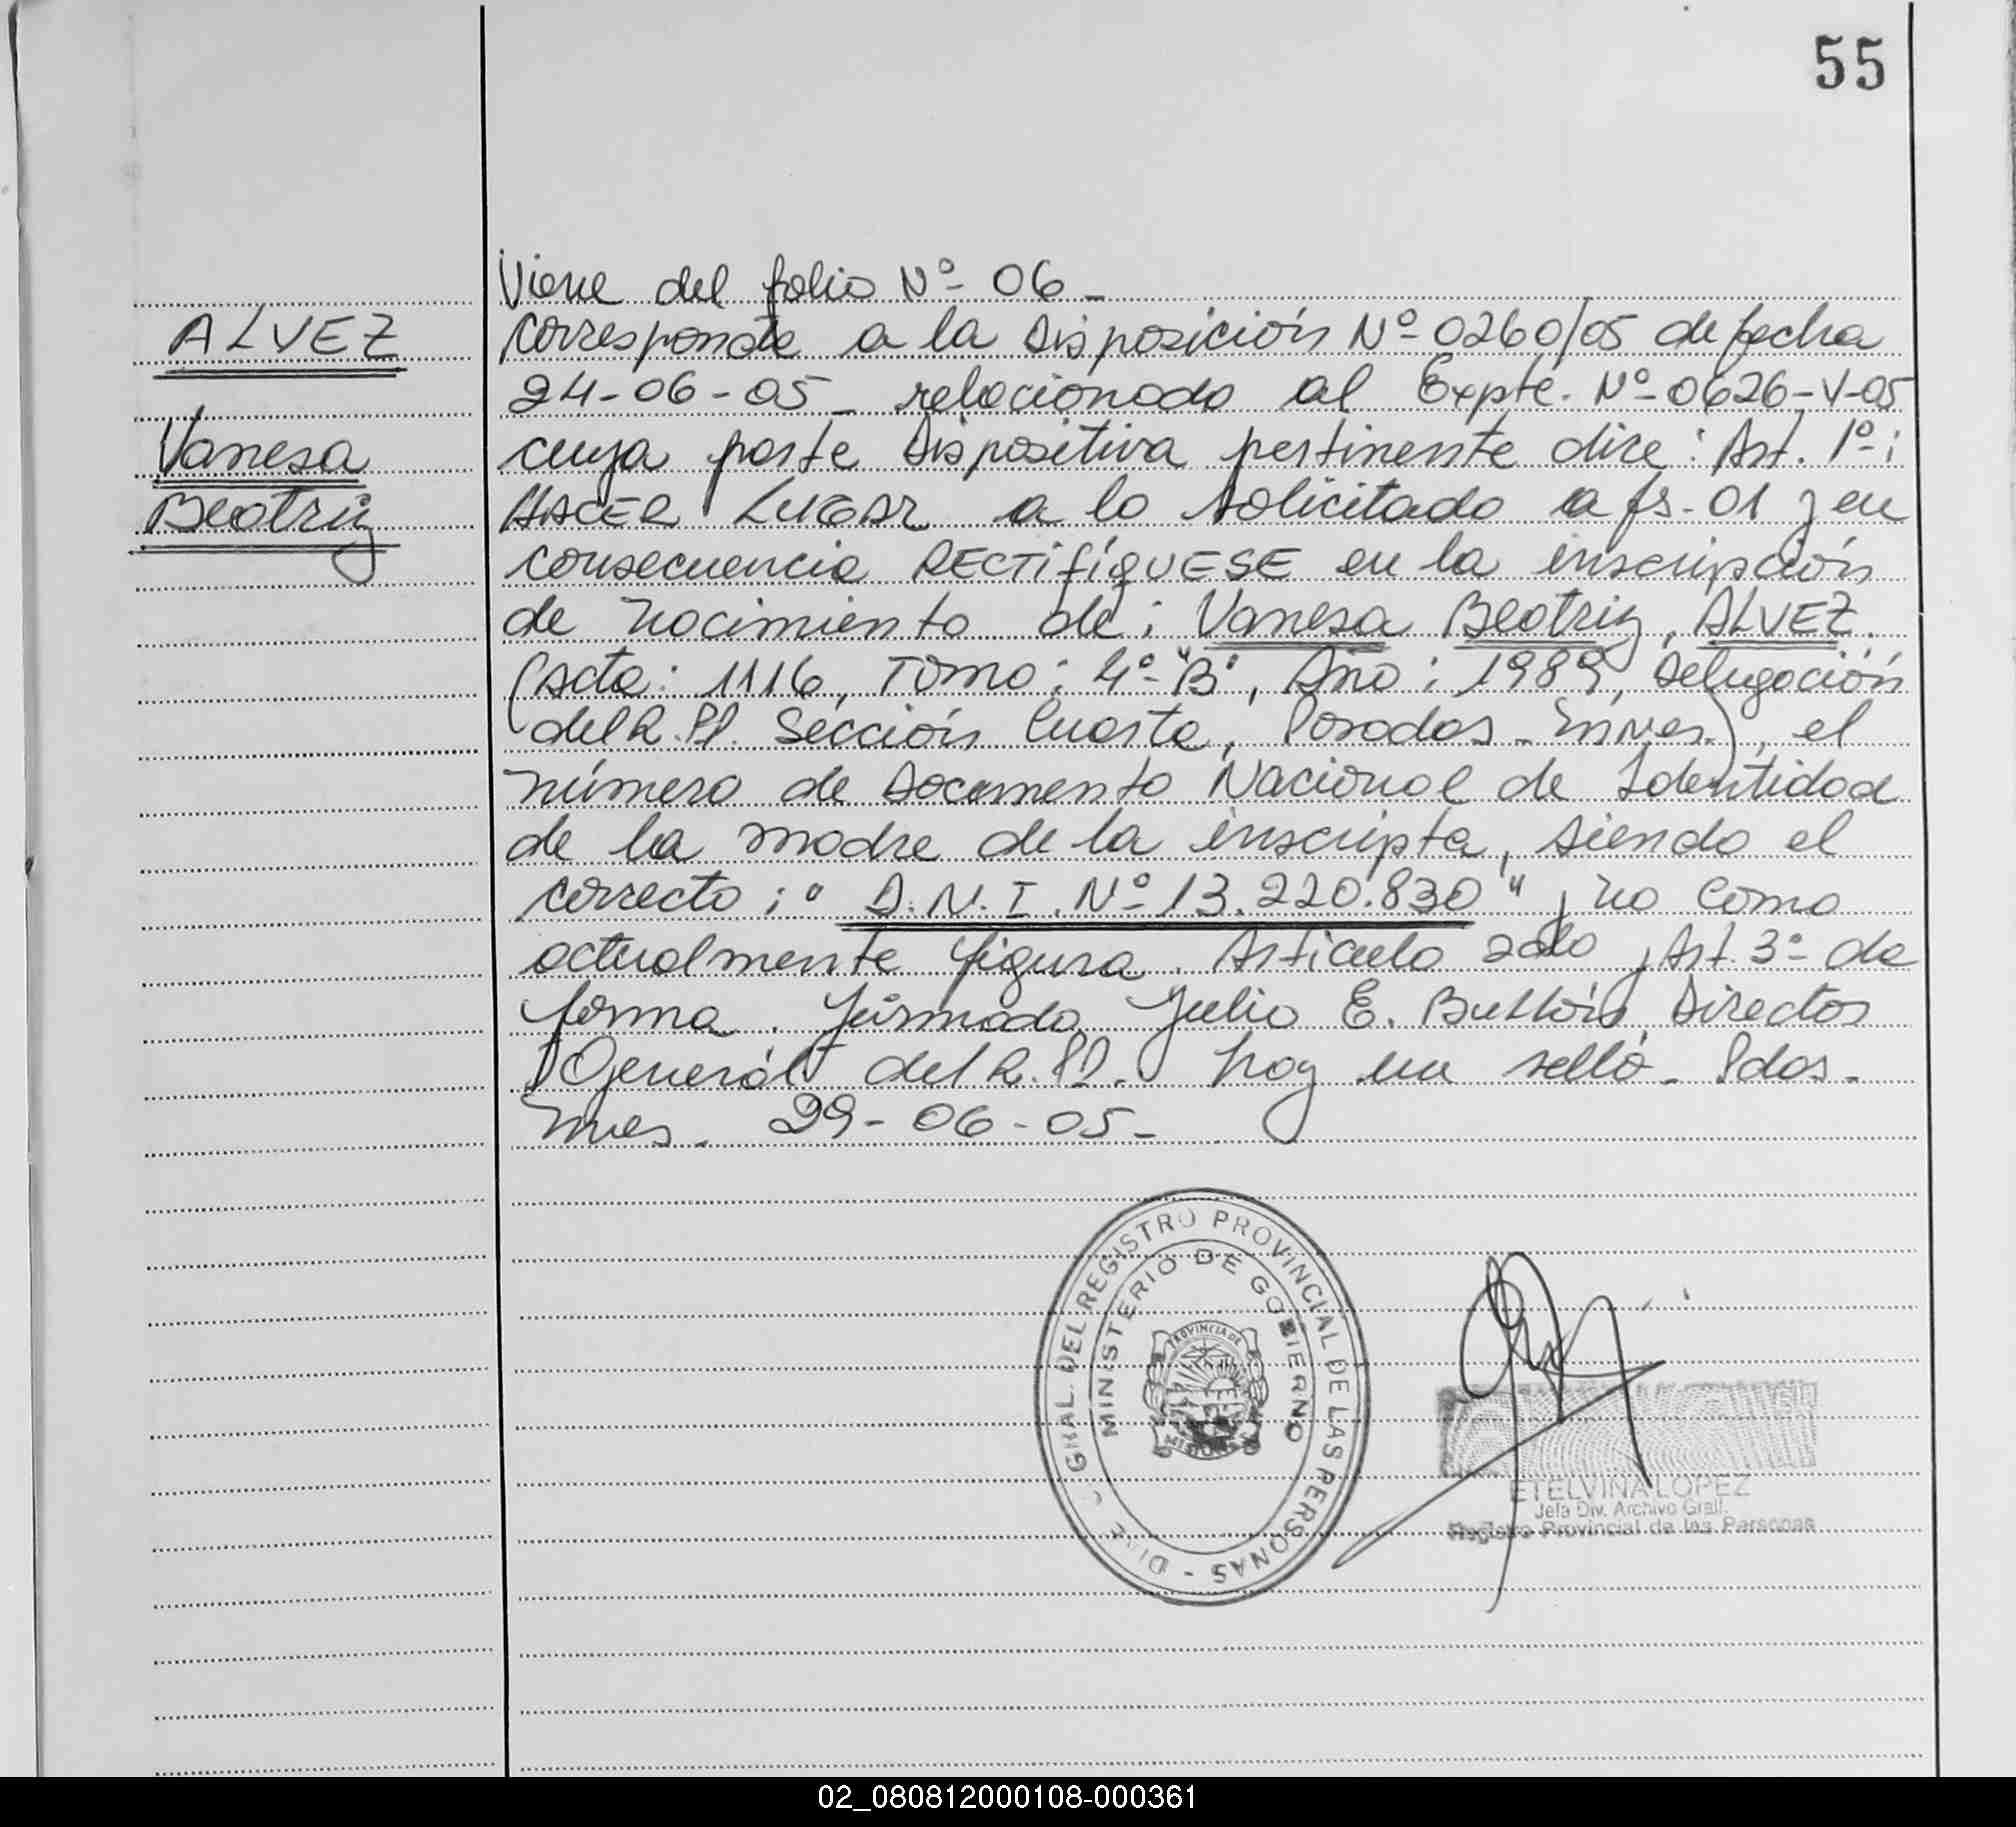 55
Viene del folio Nº 06 -
ALVEZ
Corresponde a la Disposición Nº 0260/05 de fecha
24-06-05 - relacionado al Expte. Nº 0626-V-05
Vanesa
cuya parte Dispositiva pertinente dice: Art. 1º:
Beatriz
HACER LUGAR a lo solicitado a fs. 01 y en
consecuencia RECTIFÍQUESE en la inscripción
de nacimiento de: Vanesa Beatriz, ALVEZ.
(Acta: 1116, Tomo: 4º "B", Año: 1989, Delegación
del R.P. Sección Cuarta, Posadas - Mnes.), el
número de Documento Nacional de Identidad
de la madre de la inscripta, siendo el
correcto: "D.N.I. Nº 13.220.830" y no como
actualmente figura. Artículo 2do y Art. 3º de
forma. Firmado Julio E. Director
General del R.P. hay un sello - Pdas -
Mnes. 29-06-05-
DIREC. GRAL. DEL REGISTRO PROVINCIAL DE LAS PERSONAS -
MINISTERIO DE GOBIERNO
PROVINCIA DE
MISIONES
ETELVINA LOPEZ
Jefa Div. Archivo Gral.
Registro Provincial de las Personas
02_080812000108-000361